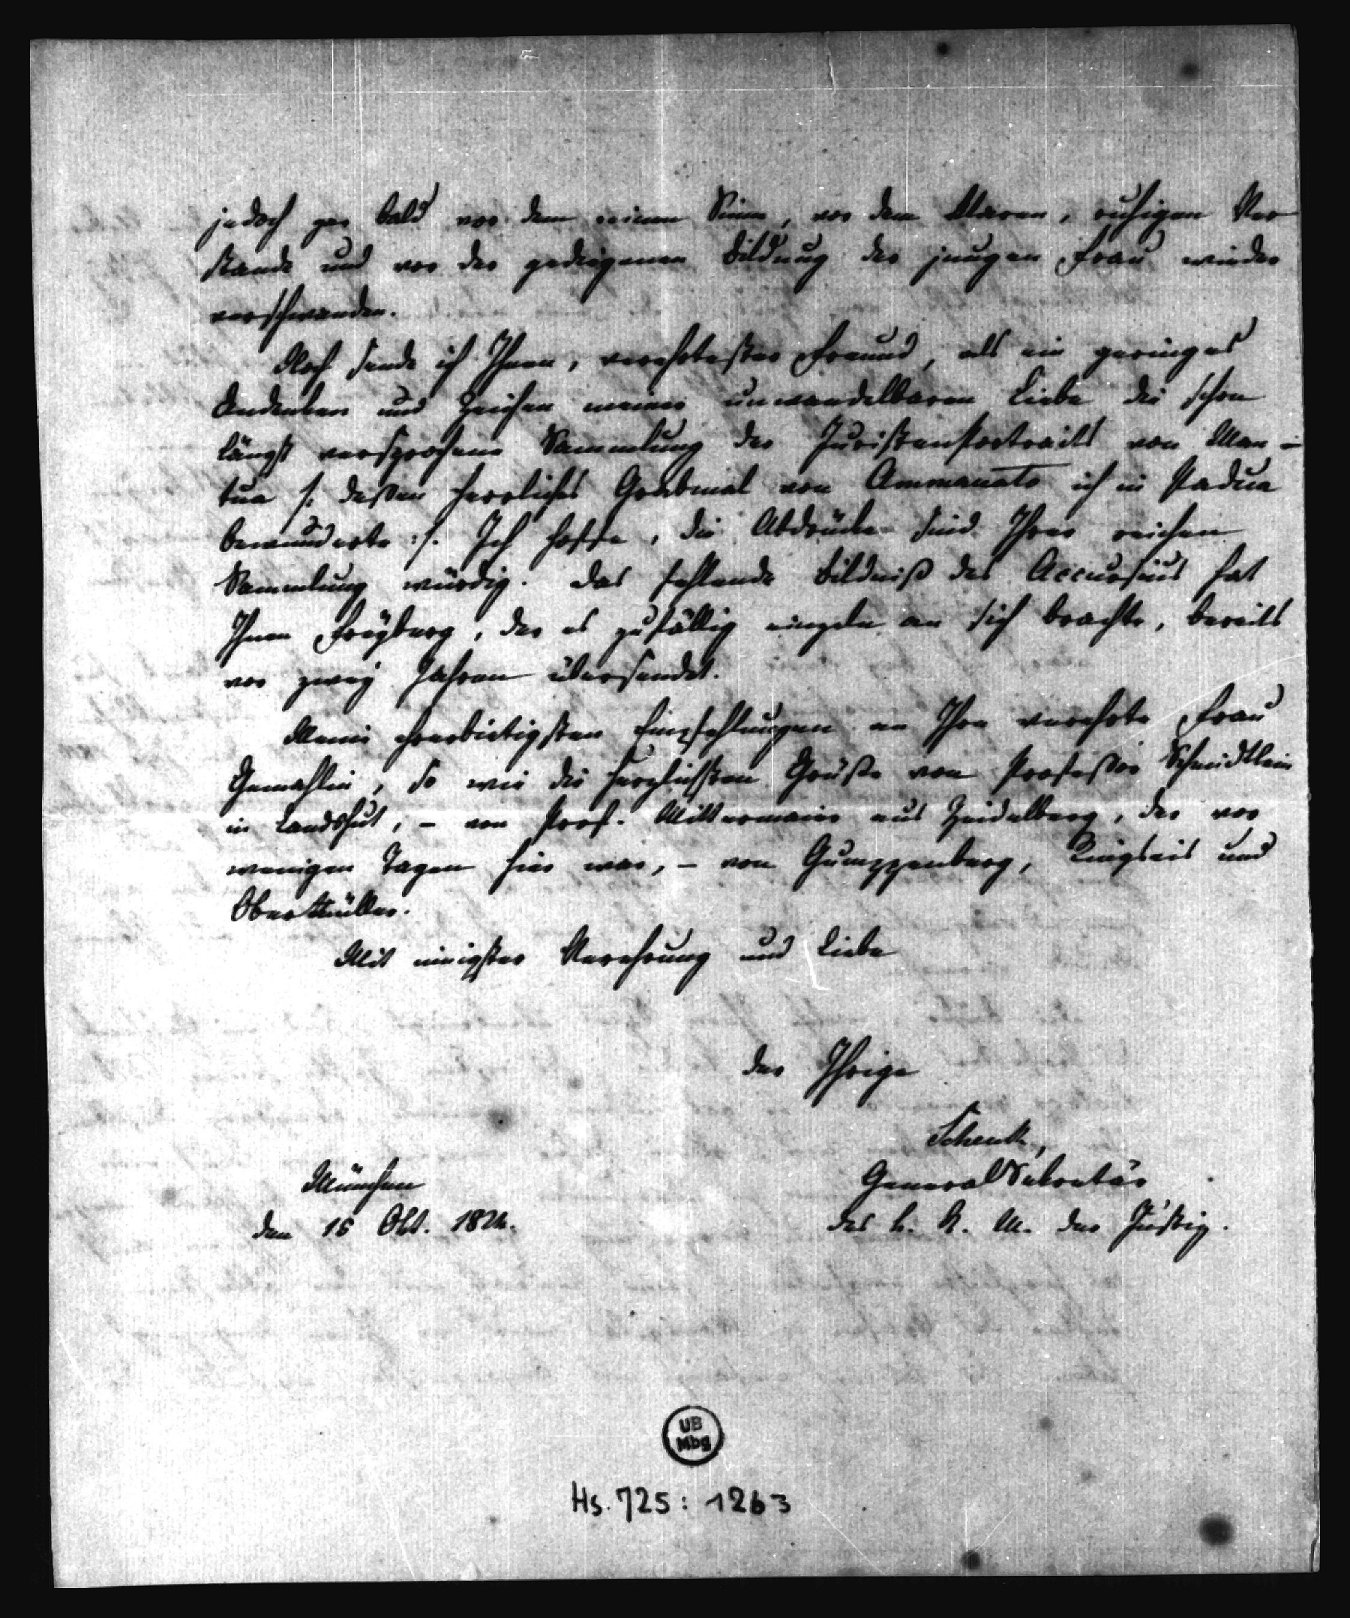 jedoch gar bald vor dem reinen Sinne, vor dem klaren, ruhigen Ver-
stande und vor der gediegenen Bildung der jungen Frau wieder
verschwanden.
Noch sende ich Ihnen, verehrtester Freund, als ein geringes
Andenken und Zeichen meiner unwandelbaren Liebe die schon
längst versprochene Sammlung der Juristenportraits von Man-
tua /: deßen herrliches Grabmal von Ammanato ich in Padua
bewunderte :/. Ich hoffe, die Abdrücke sind Ihrer reichen
Sammlung würdig. Das fehlende Bildniß des Accursius hat
Ihnen Freyberg, der es zufällig einzeln an sich brachte, bereits
vor zwey Jahren übersendet.
Meine ehrerbietigsten Empfehlungen an Ihre verehrte Frau
Gemahlin, so wie die herzlichsten Grüße von Profeßor Schmidtlein
in Landshut, – von Prof. Mittermaier aus Heidelberg, der vor
wenigen Tagen hier war, – von Gumppenberg, Ringseis und
Obermüller.
Mit innigster Verehrung und Liebe
der Ihrige
Schenk,
München
General Sekretär
den 15 Okt. 1824.
des k. St. M. der Justiz.
UB
Mbg
Hs. 725: 1263